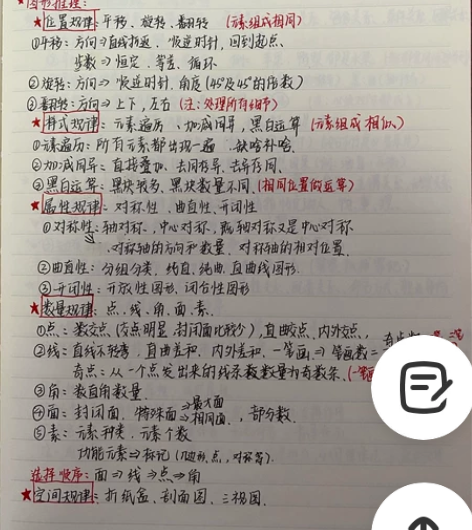 ★图形推理:
★位置规律: 平移、旋转、翻转 (元素组成相同)
①平移: 方向⇒直线折返、顺逆时针, 回到起点、
步数⇒恒定、等差、循环
②旋转: 方向⇒顺逆时针, 角度 (45°及45°的倍数)
③翻转: 方向⇒上下, 左右 (注: 处理所有细节)
★样式规律: 元素遍历、加减同异, 黑白运算 (元素组成相似)
①元素遍历: 所有元素都出现一遍、缺啥补啥、
②加减同异: 直接叠加、去同存异、去异存同、
③黑白运算: 黑块较多、黑块数量不同、(相同位置做运算)
★属性规律: 对称性、曲直性、开闭性
①对称性: 轴对称、中心对称、既轴对称又是中心对称
、对称轴的方向和数量、对称轴的相对位置
②曲直性: 分组分类、纯直、纯曲、直曲线图形
③开闭性: 开放性图形, 闭合性图形
★数量规律: 点、线、角、面、素、
①点: 数交点 (交点明显, 封闭面比较少), 直曲交点、内外交点,
②线: 直线条数、直曲差和、内外差和、一笔画⇒笔画数=
奇点: 从一个点发出来的线条数数量为奇数条、(一笔画
③角: 数直角数量
④面: 封闭面, 特殊面⇒最大面 ⇒相同面, 部分数
⑤素: 元素种类、元素个数
功能元素⇒标记 (几边形, 点, 对称等)
选择顺序: 面⇒线⇒点⇒角
★空间规律: 折纸盒、剖面图、三视图、